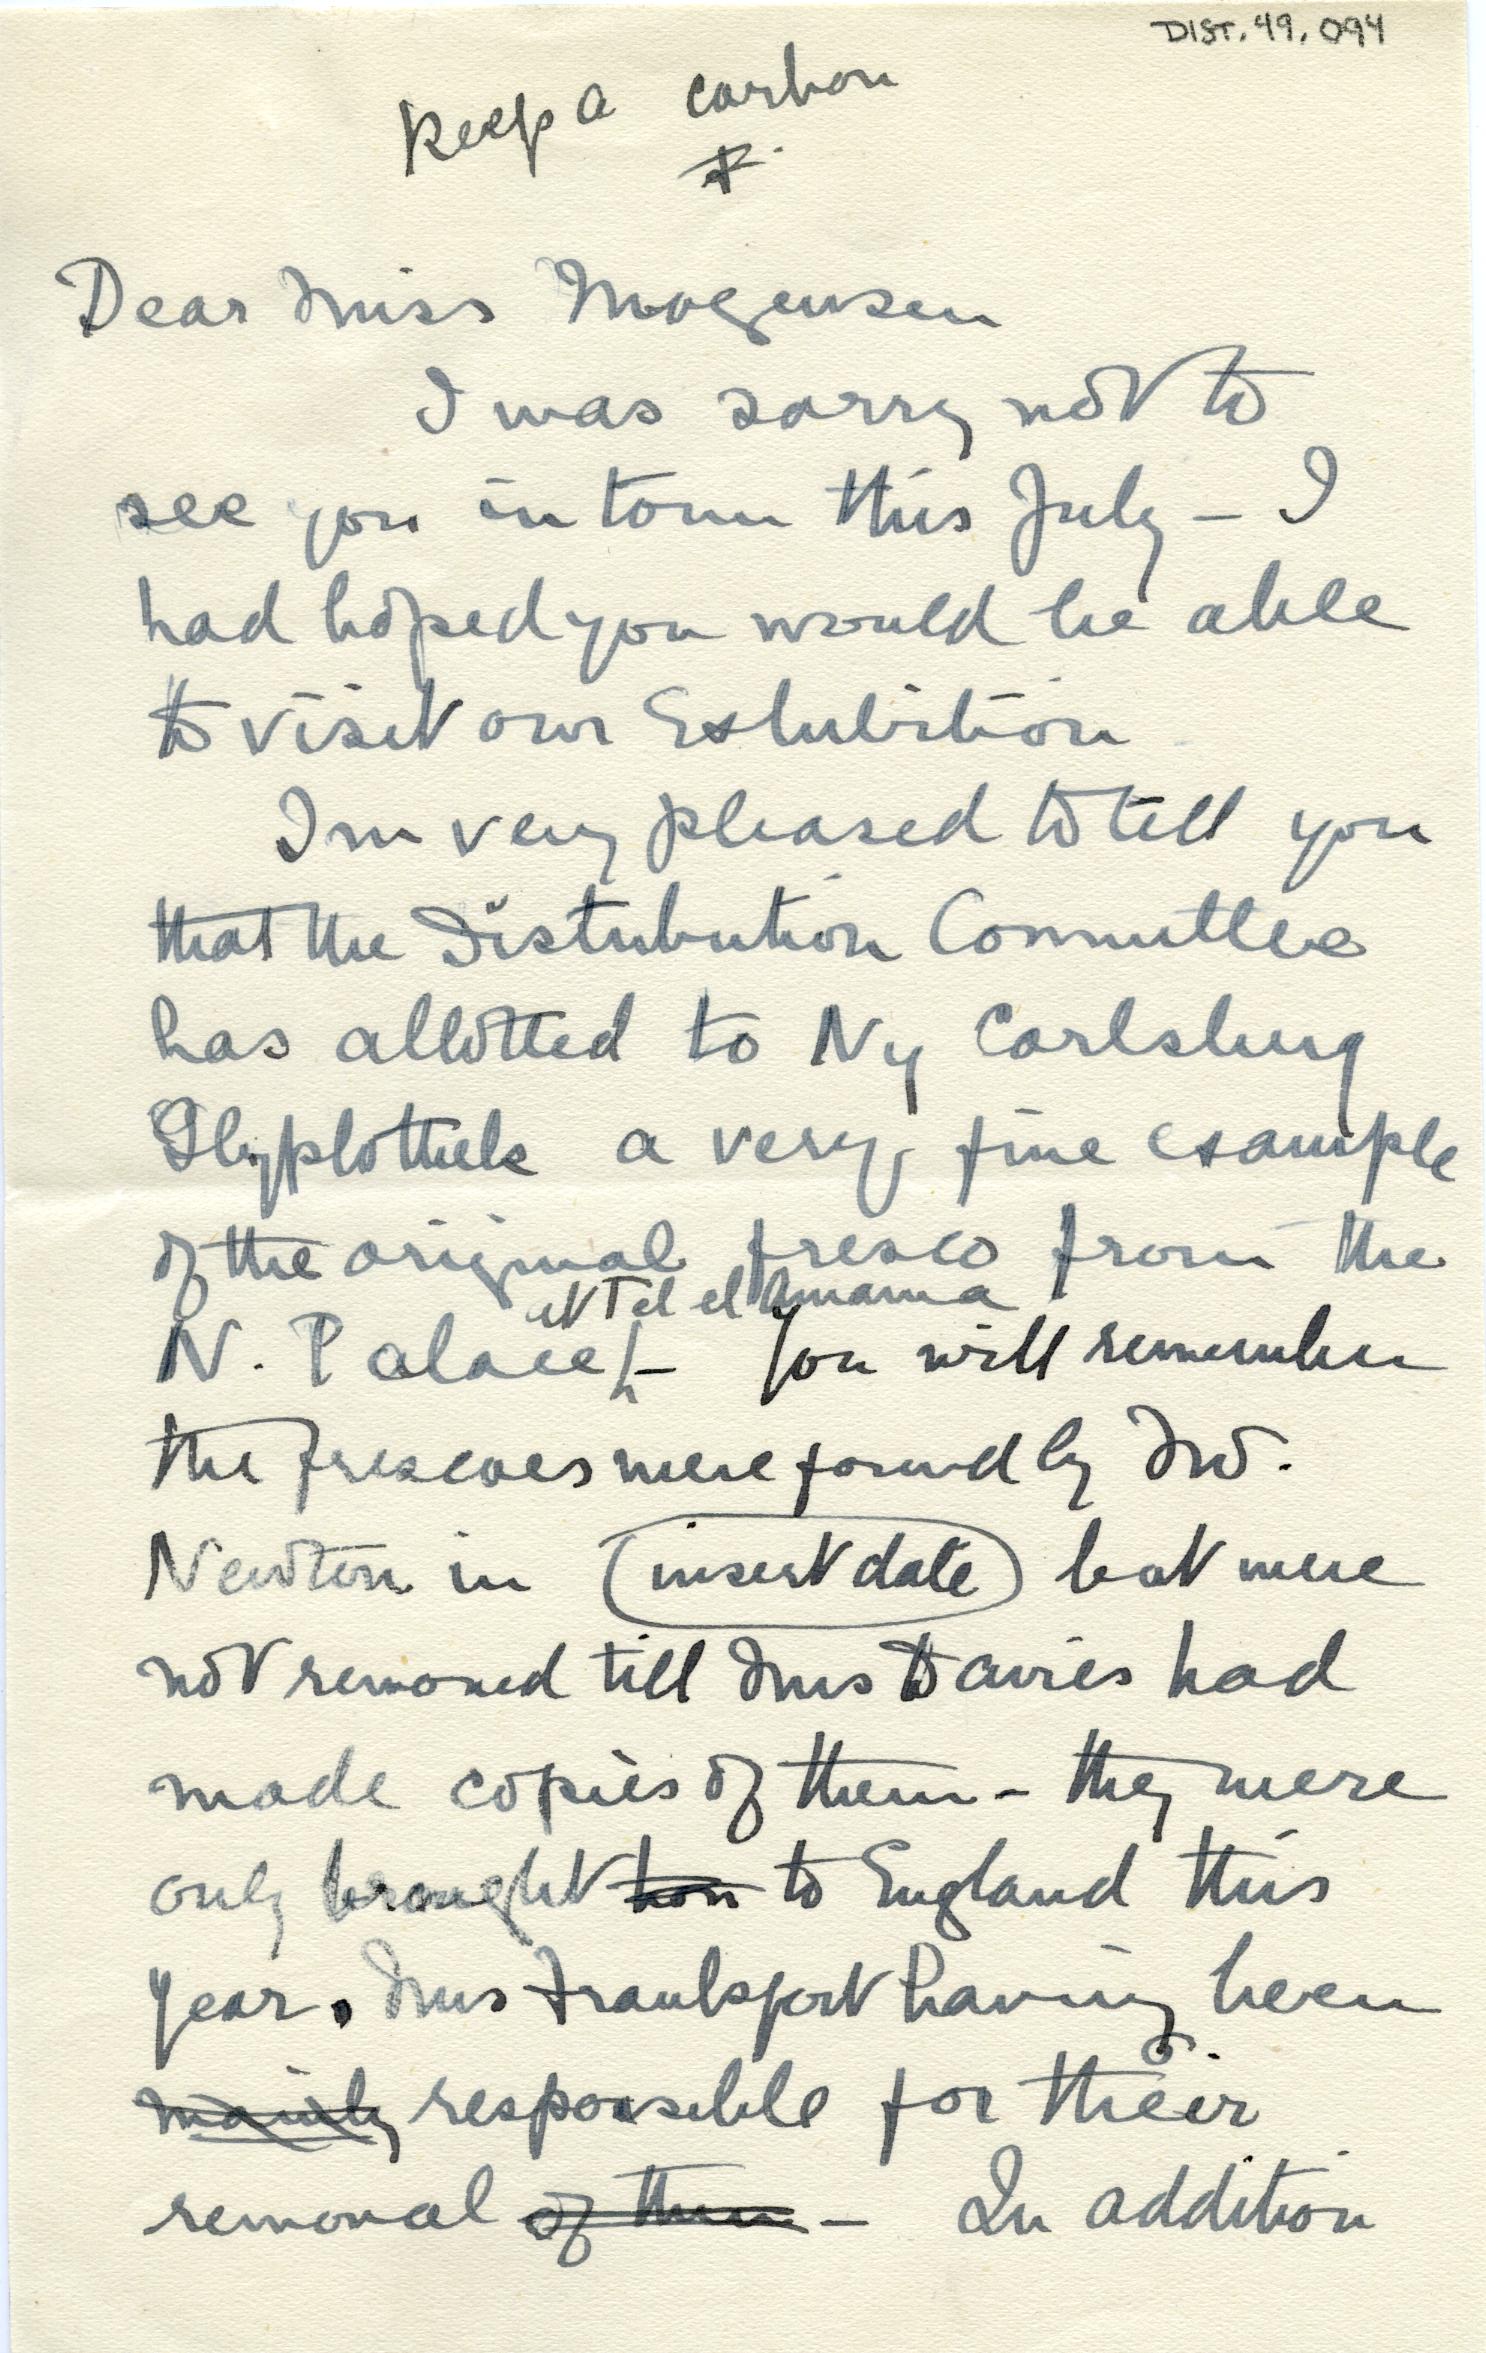 DIST. 49. 094
Keep a carbon
Dear Miss Mogensen
I was sorry not to
see you in town this July – I
had hoped you would be able
to visit our Exhibition
I'm very pleased to tell you
that the Distribution Committee
has allotted to Ny Carlsberg
Glyptothek a very fine example
of the original fresco from the
at Tel el Amarna
N. Palace – You will remember
the frescoes were found by Mr.
Newton in (insert date) but were
not removed till Mrs Davies had
made copies of them – they were
only brought to England this
year. Mrs Frankfort having been
mainly responsible for their
removal of them – In addition